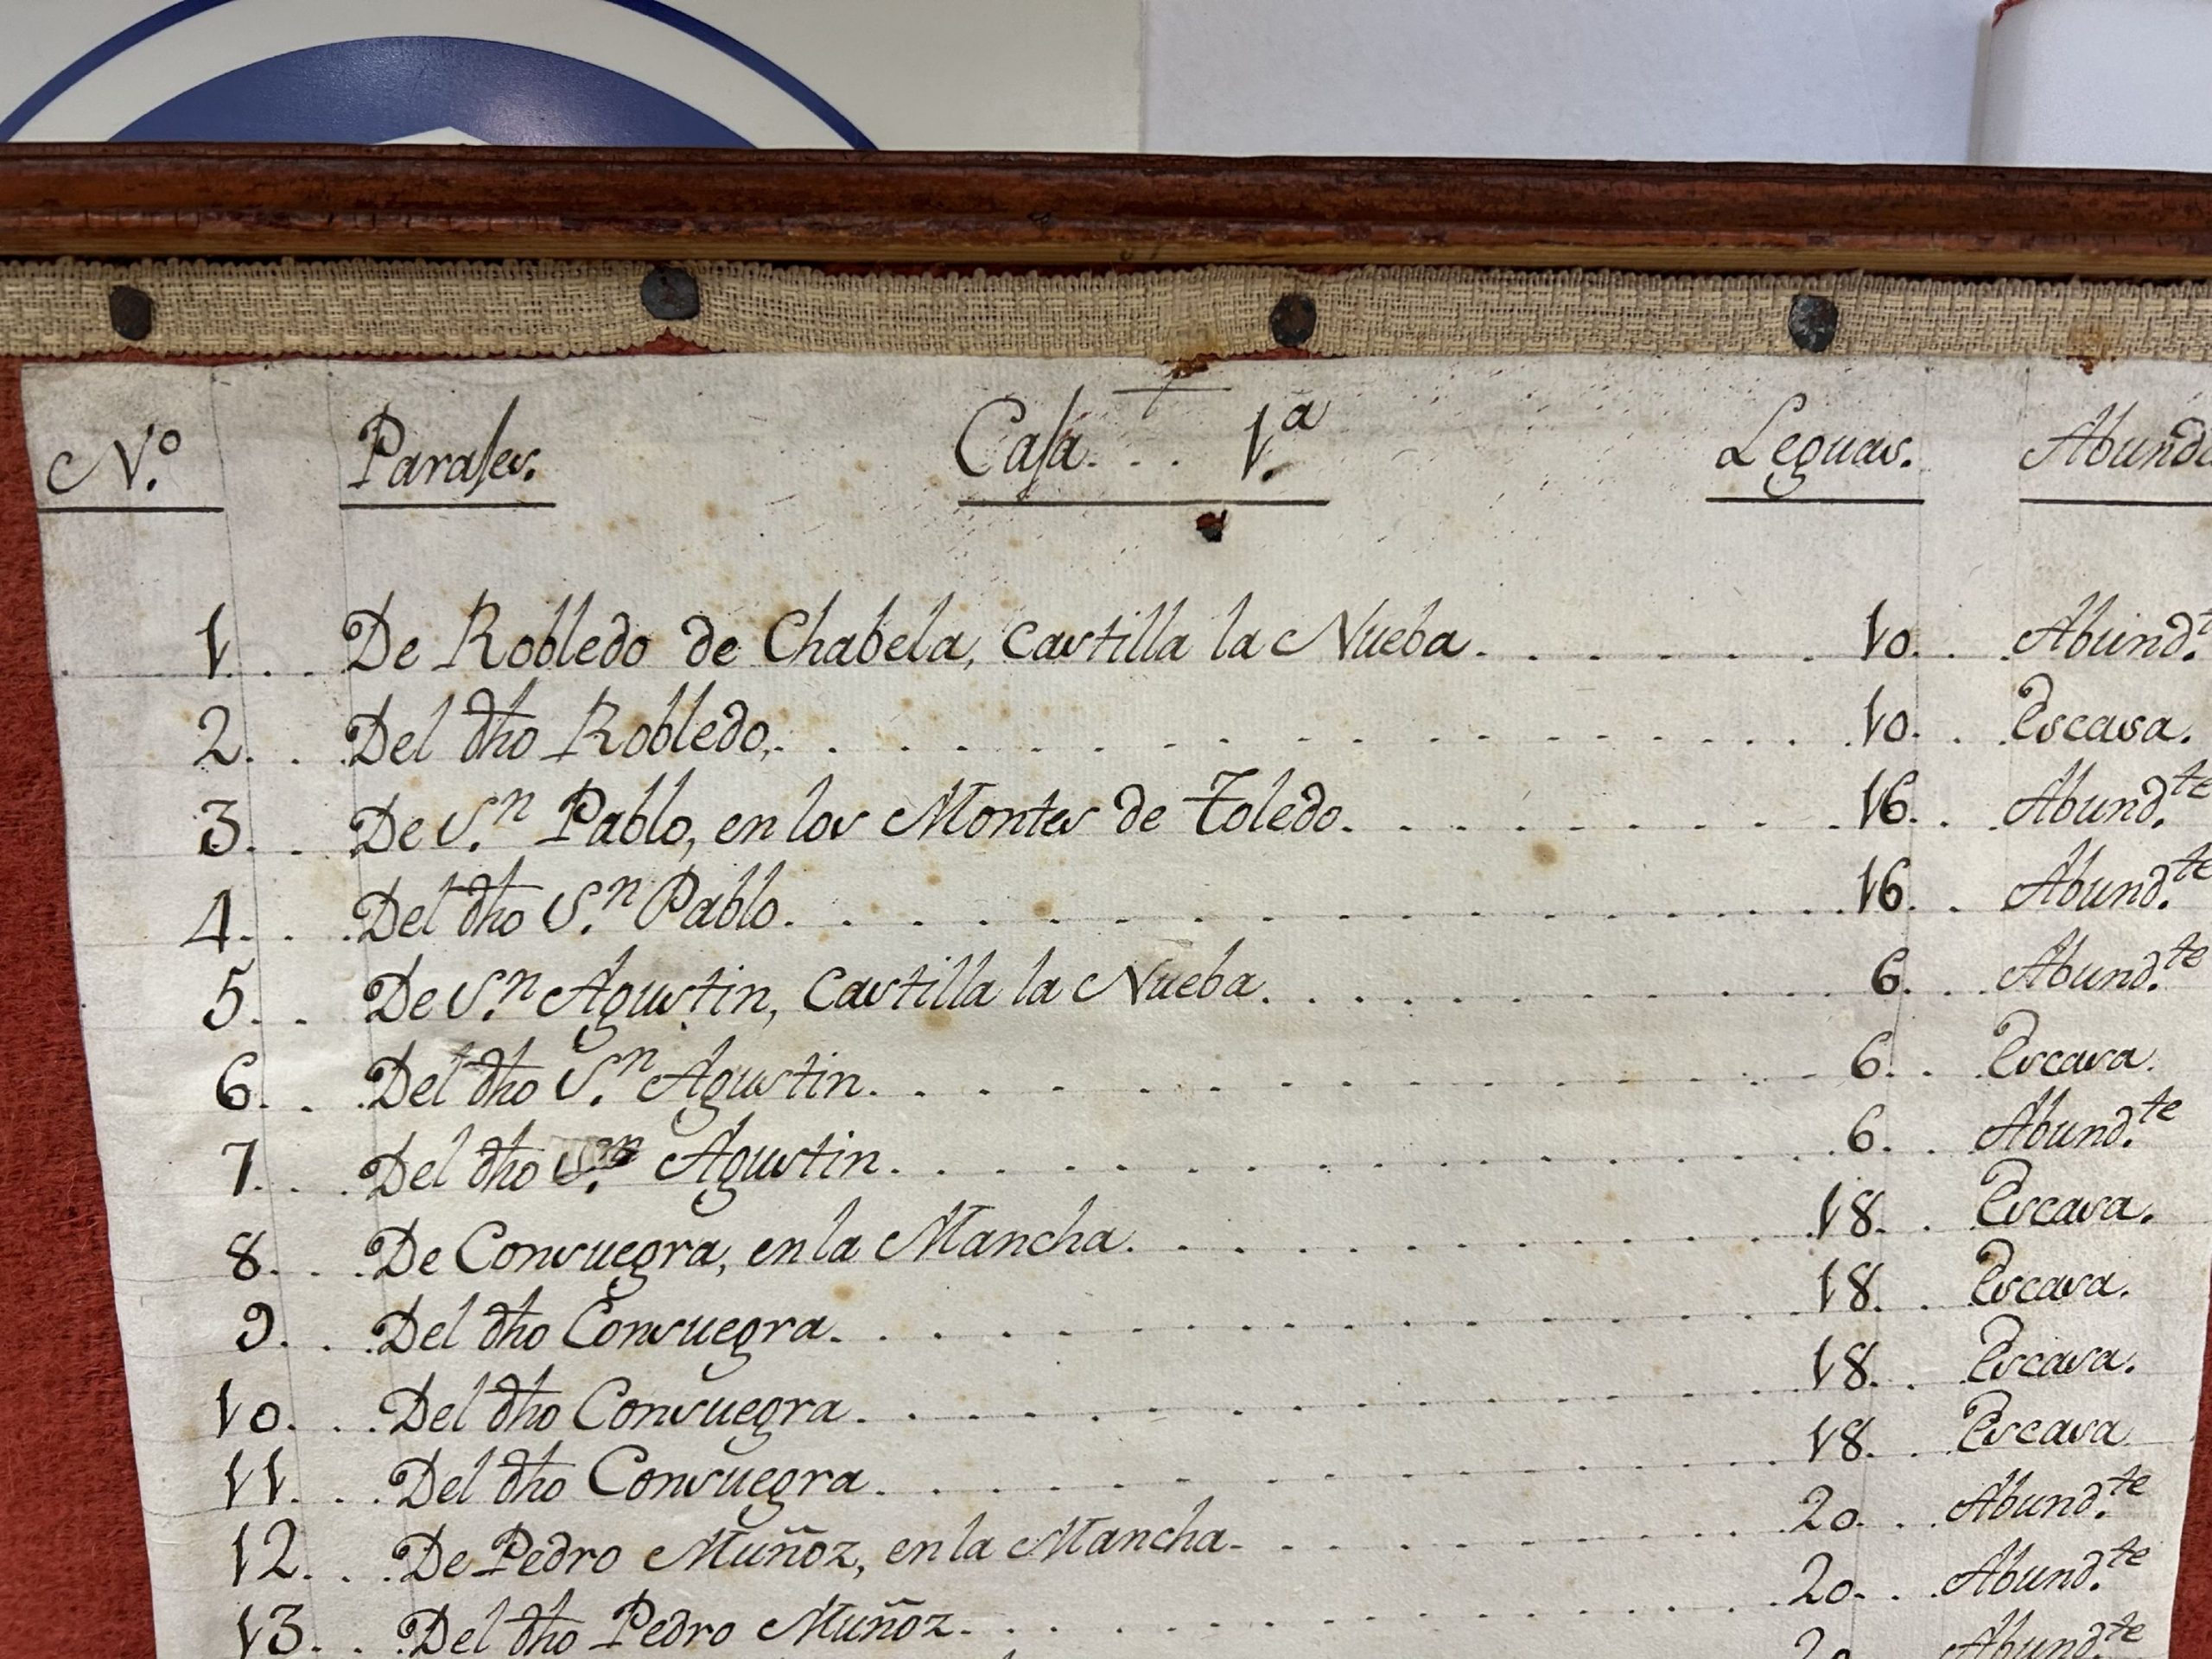 N.º Parajes. Caja... 1.ª Leguas. Abund
1... De Robledo de Chabela, Castilla la Nueba. 10... Abund.t
2... Del dho Robledo, 10... Escasa.
3... De S.n Pablo, en los Montes de Toledo. 16... Abund.te
4... Del dho S.n Pablo. 16... Abund.te
5... De S.n Agustin, Castilla la Nueba. 6... Abund.te
6... Del dho S.n Agustin. 6... Escasa.
7... Del dho S.n Agustin. 6... Abund.te
8... De Consuegra, en la Mancha. 18... Escasa.
9... Del dho Consuegra. 18... Escasa.
10... Del dho Consuegra. 18... Escasa.
11... Del dho Consuegra. 18... Escasa
12... De Pedro Muñoz, en la Mancha. 20... Abund.te
13... Del dho Pedro Muñoz. 20... Abund.te
20 Abund.te